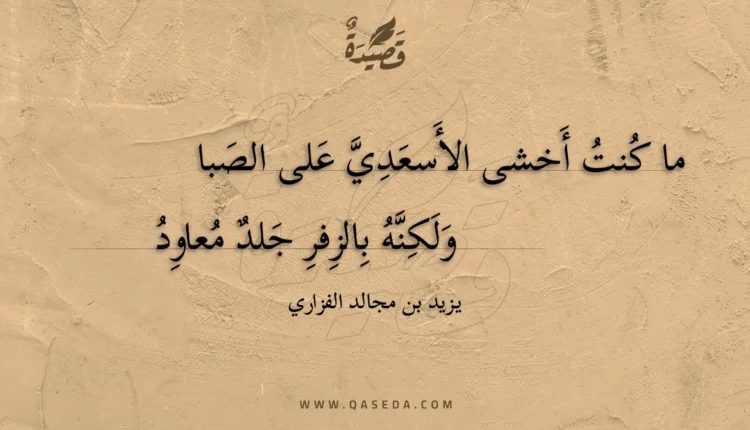 قَصِيدَةٌ
ما كُنتُ أَخشى الأَسعَدِيَّ عَلى الصَبا
وَلَكِنَّهُ بِالزِفرِ جَلدٌ مُعاوِدُ
يزيد بن مجالد الفزاري
WWW.QASEDA.COM